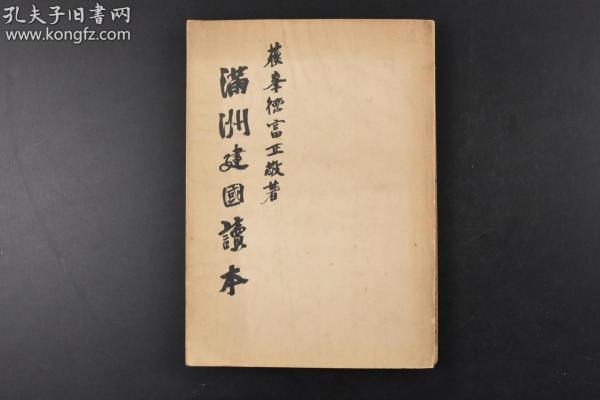 孔夫子旧书网
www.kongfz.com
蘇峰德富正敬著
滿洲建國讀本